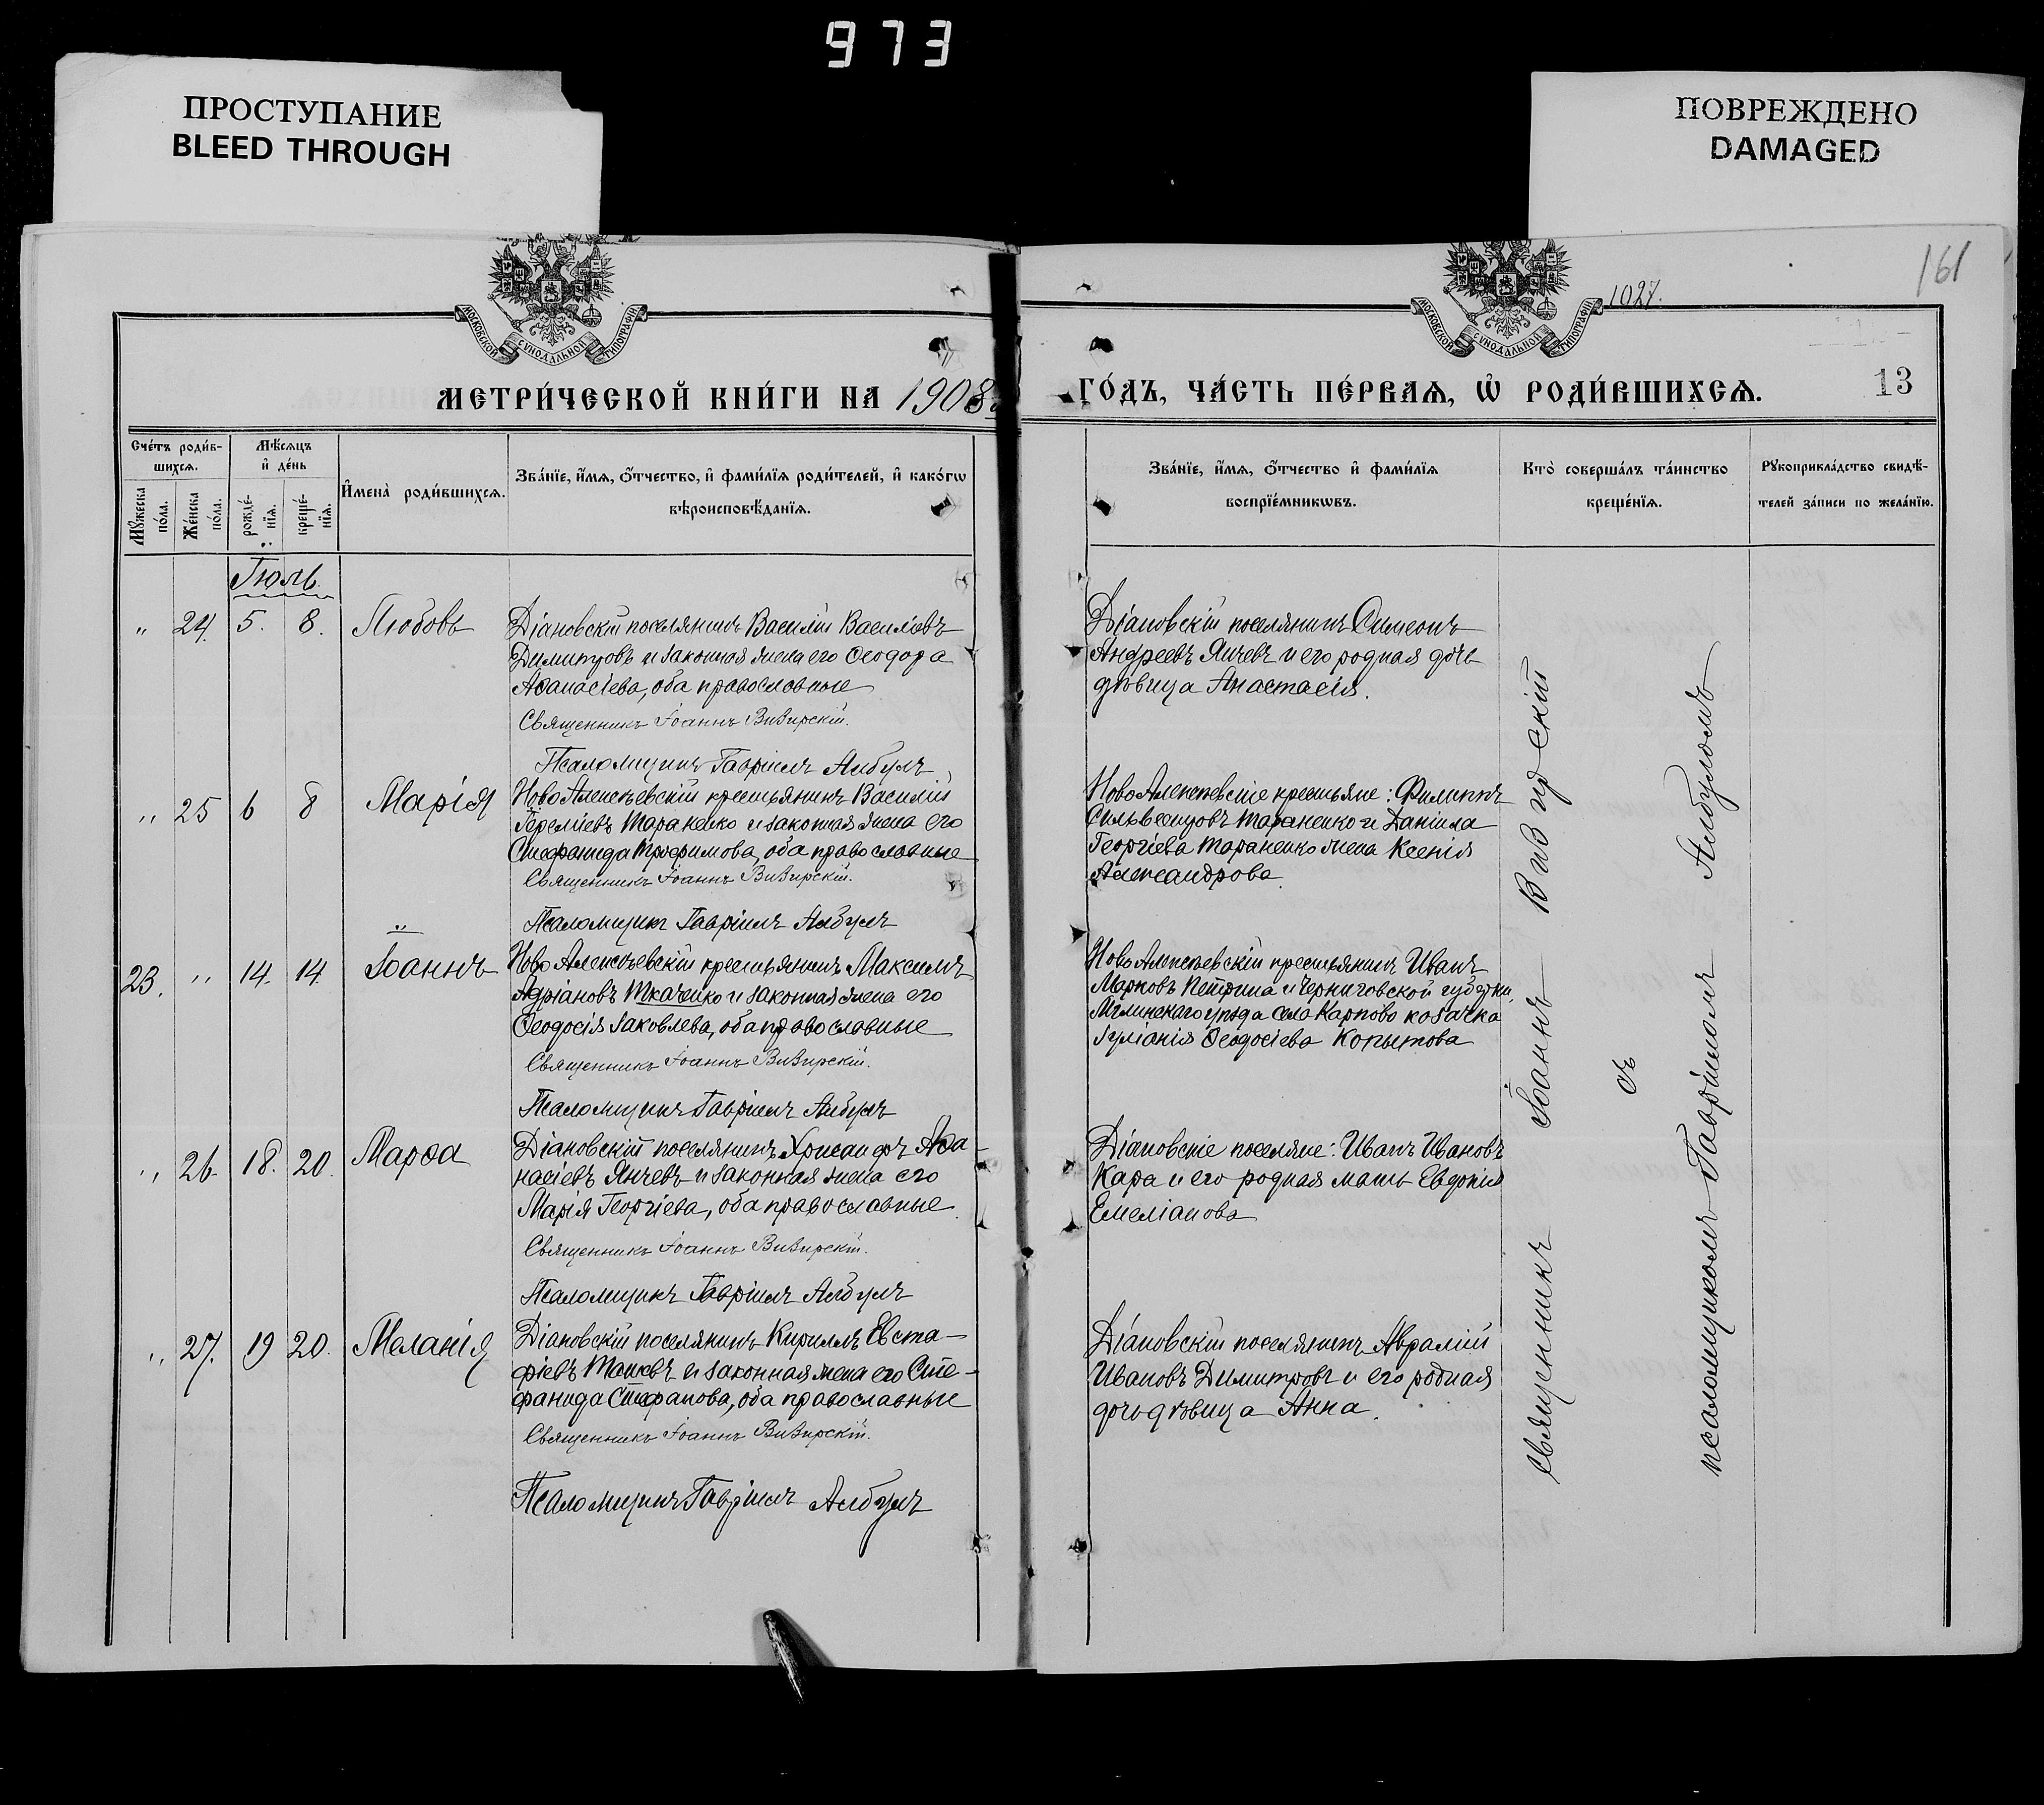 973
ПРОСТУПАНИЕ
BLEED THROUGH
ПОВРЕЖДЕНО
DAMAGED
161
1027.
МОСКОВСКОЙ СѴНОДАЛЬНОЙ ТИПОГРАФІИ
МОСКОВСКОЙ СѴНОДАЛЬНОЙ ТИПОГРАФІИ
МЕТРИ́ЧЕСКОЙ КНИ́ГИ НА 1908
ГО́ДЪ, ЧА́СТЬ ПЕ́РВАѦ, Ѡ҆ РОДИ́ВШИХСѦ.
13
Сче́тъ роди́в-
шихсѧ.
Мꙋжеска по́ла.
Же́нска по́ла.
Мѣ́сѧцъ
и҆ де́нь
рожде́-
нїѧ.
креще́-
нїѧ.
И҆мена̀ роди́вшихсѧ.
Зва́нїе, и҆́мѧ, ѻ҆́тчество, и҆ фами́лїѧ роди́телей, и҆ како́гѡ
вѣроисповѣ́данїѧ.
Зва́нїе, и҆́мѧ, ѻ҆́тчество и҆ фами́лїѧ
воспрїе́мникѡвъ.
Кто̀ соверша́лъ та́инство
креще́нїѧ.
Рꙋкоприкла́дство свидѣ́-
телей за́писи по жела́нїю.
Іюль.
" 24. 5. 8. Любовь
Діановскій поселянинъ Василій Васильевъ
Димитровъ и законная жена его Ѳеодора
Аѳанасіева, оба православные
Священникъ Іоаннъ Вивирскій.
Псаломщикъ Гавріилъ Албулъ
Діановскій поселянинъ Симеонъ
Андреевъ Янчевъ и его родная дочь
дѣвица Анастасія.
" 25 6 8 Марія
НовоАлексѣевскій крестьянинъ Василій
Іереміевъ Тараненко и законная жена его
Стефанида Трофимова, оба православные
Священникъ Іоаннъ Вивирскій.
Псаломщикъ Гавріилъ Албулъ
НовоАлексѣевскіе крестьяне: Филиппъ
Сильвестровъ Тараненко и Даніила
Георгіева Тараненко жена Ксенія
Александрова
23. " 14. 14. Іоаннъ
НовоАлексѣевскій крестьянинъ Максимъ
Адріановъ Ткаченко и законная жена его
Ѳеодосія Іаковлева, оба православные
Священникъ Іоаннъ Вивирскій.
Псаломщикъ Гавріилъ Албулъ
НовоАлексѣевскій крестьянинъ Иванъ
Марковъ Петрина и Черниговской губерніи,
Мглинскаго уѣзда села Карпово козачка
Іуліанія Ѳеодосіева Копытова
" 26. 18. 20. Марѳа
Діановскій поселянинъ Хрисанфъ Аѳа-
насіевъ Янчевъ и законная жена его
Марія Георгіева, оба православные.
Священникъ Іоаннъ Вивирскій.
Псаломщикъ Гавріилъ Албулъ
Діановскіе поселяне: Иванъ Ивановъ
Кара и его родная мать Евдокія
Емеліанова
" 27. 19 20. Меланія
Діановскій поселянинъ Кириллъ Евста-
фіевъ Танчевъ и законная жена его Сте-
фанида Стефанова, оба православные
Священникъ Іоаннъ Вивирскій.
Псаломщикъ Гавріилъ Албулъ
Діановскій поселянинъ Авралій
Ивановъ Димитровъ и его родная
дочь дѣвица Анна.
Священникъ Іоаннъ Вивирскій
съ
псаломщикомъ Гавріиломъ Албуломъ